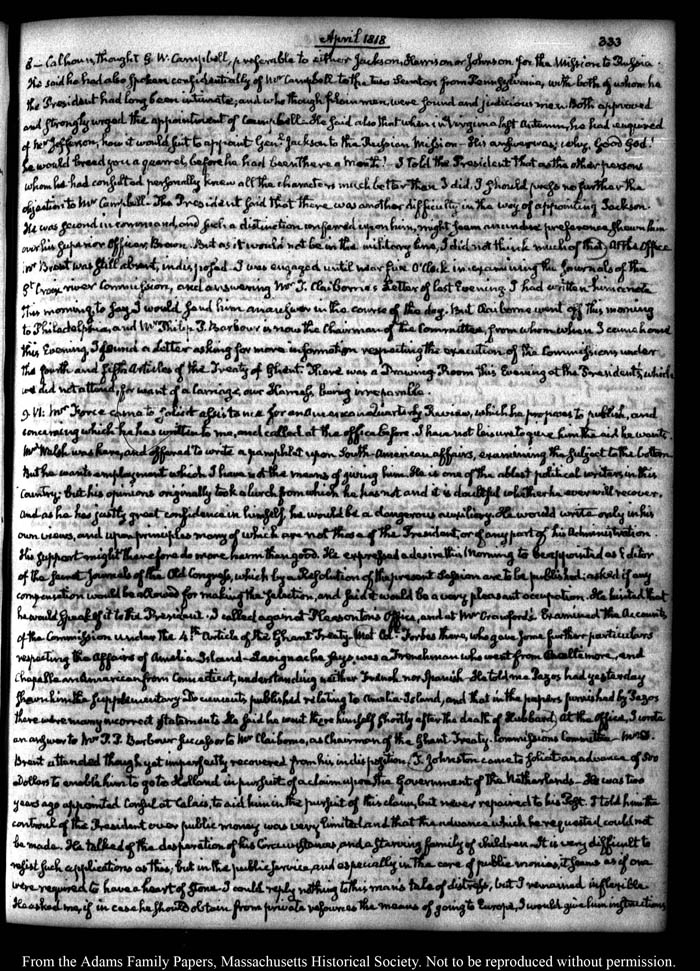 April 1818
333
8— Calhoun thought G. W. Campbell, preferable to either Jackson, Harrison or Johnson for the Mission to Russia.
He said he had also spoken confidentially of Mr Campbell to the two Senators from Pennsylvania, with both of whom he
the President had long been intimate; and who though plain men, were sound and judicious men. Both approved
and strongly urged the appointment of Campbell. He said also that when in Virginia last Autumn, he had enquired
of Mr Jefferson, how it would suit to appoint Genl Jackson to the Russian Mission— His answer was; why, Good God!
he would breed you a quarrel, before he had been there a month! I told the President that as the other persons
whom he had consulted personally knew all the characters much better than I did, I should press no further the
objection to Mr Campbell. The President said that there was another difficulty in the way of appointing Jackson.
He was second in command, and such a distinction conferred upon him, might seem an undue preference shewn him
over his Superior Officer, Brown. But as it would not be in the military line, I did not think much of that. At the Office
Mr Brent was still absent, indisposed. I was engaged until near five O'Clock in examining the Journals of the
St Croix river Commission, and answering Mr T. Claiborne's Letter of last Evening. I had written him a note
this morning to say I would send him an answer in the course of the day. But Claiborne went off this morning
to Philadelphia, and Mr Philip P. Barbour is now the Chairman of the Committee, from whom when I came home
this Evening, I found a Letter asking for more information respecting the execution of the Commissions under
the fourth and fifth Articles of the Treaty of Ghent. There was a Drawing Room this Evening at the President's, which
we did not attend, for want of a carriage, our Harness being irreparable.
9. VI: Mr Force came to solicit assistance for an American Quarterly Review, which he proposes to publish, and
concerning which he has written to me, and called at the office before. I have not leisure to give him the aid he wants.
Mr Walsh was here, and offered to write a pamphlet upon South-American affairs, examining the subject to the bottom
But he wants employment which I have not the means of giving him. He is one of the ablest political writers in this
Country; but his opinions originally took a lurch from which he has not and it is doubtful whether he ever will recover.
And as he has justly great confidence in himself, he would be a dangerous auxiliary. He would write only in his
own views, and upon principles many of which are not those of the President, or of any part of his Administration.
His support might therefore do more harm than good. He expressed a desire this Morning to be appointed as Editor
of the secret Journals of the Old Congress, which by a Resolution of the present Session are to be published; asked if any
compensation would be allowed for making the selection, and said it would be a very pleasant occupation. He hinted that
he would speak of it to the President. I called again at Pleasonton's Office, and at Mr Crawford's. Examined the Accounts
of the Commission under the 4th Article of the Ghent Treaty. Met Coll Forbes there, who gave some further particulars
respecting the Affairs of Amelia Island— Lavignac he says was a Frenchman who went from Baltimore, and
Chapelle an American from Connecticut, understanding neither French nor Spanish. He told me Pazos had yesterday
shewn him the supplementary Documents published relating to Amelia-Island, and that in the papers furnished by Pazos
there were many incorrect statements. He said he went there himself shortly after the death of Hubbard. At the Office, I wrote
an answer to Mr P. P. Barbour successor to Mr Claiborne, as Chairman of the Ghent Treaty Commissions Committee— Mr D.
Brent attended though yet imperfectly recovered from his indisposition. T. Johnston came to solicit an advance of 500
Dollars to enable him to go to Holland in pursuit of a claim upon the Government of the Netherlands— He was two
years ago appointed Consul at Calais, to aid him in the pursuit of this claim, but never repaired to his Post. I told him the
controul of the President over public money was very limited and that the advance which he requested could not
be made. He talked of the desperation of his Circumstances, and a starving family of children. It is very difficult to
resist such applications as this; but in the public service, and especially in the care of public monies, it seems as if one
were required to have a heart of stone. I could reply nothing to this man's tale of distress, but I remained inflexible
He asked me, if in case he should obtain from private resources the means of going to Europe, I would give him instructions
From the Adams Family Papers, Massachusetts Historical Society. Not to be reproduced without permission.